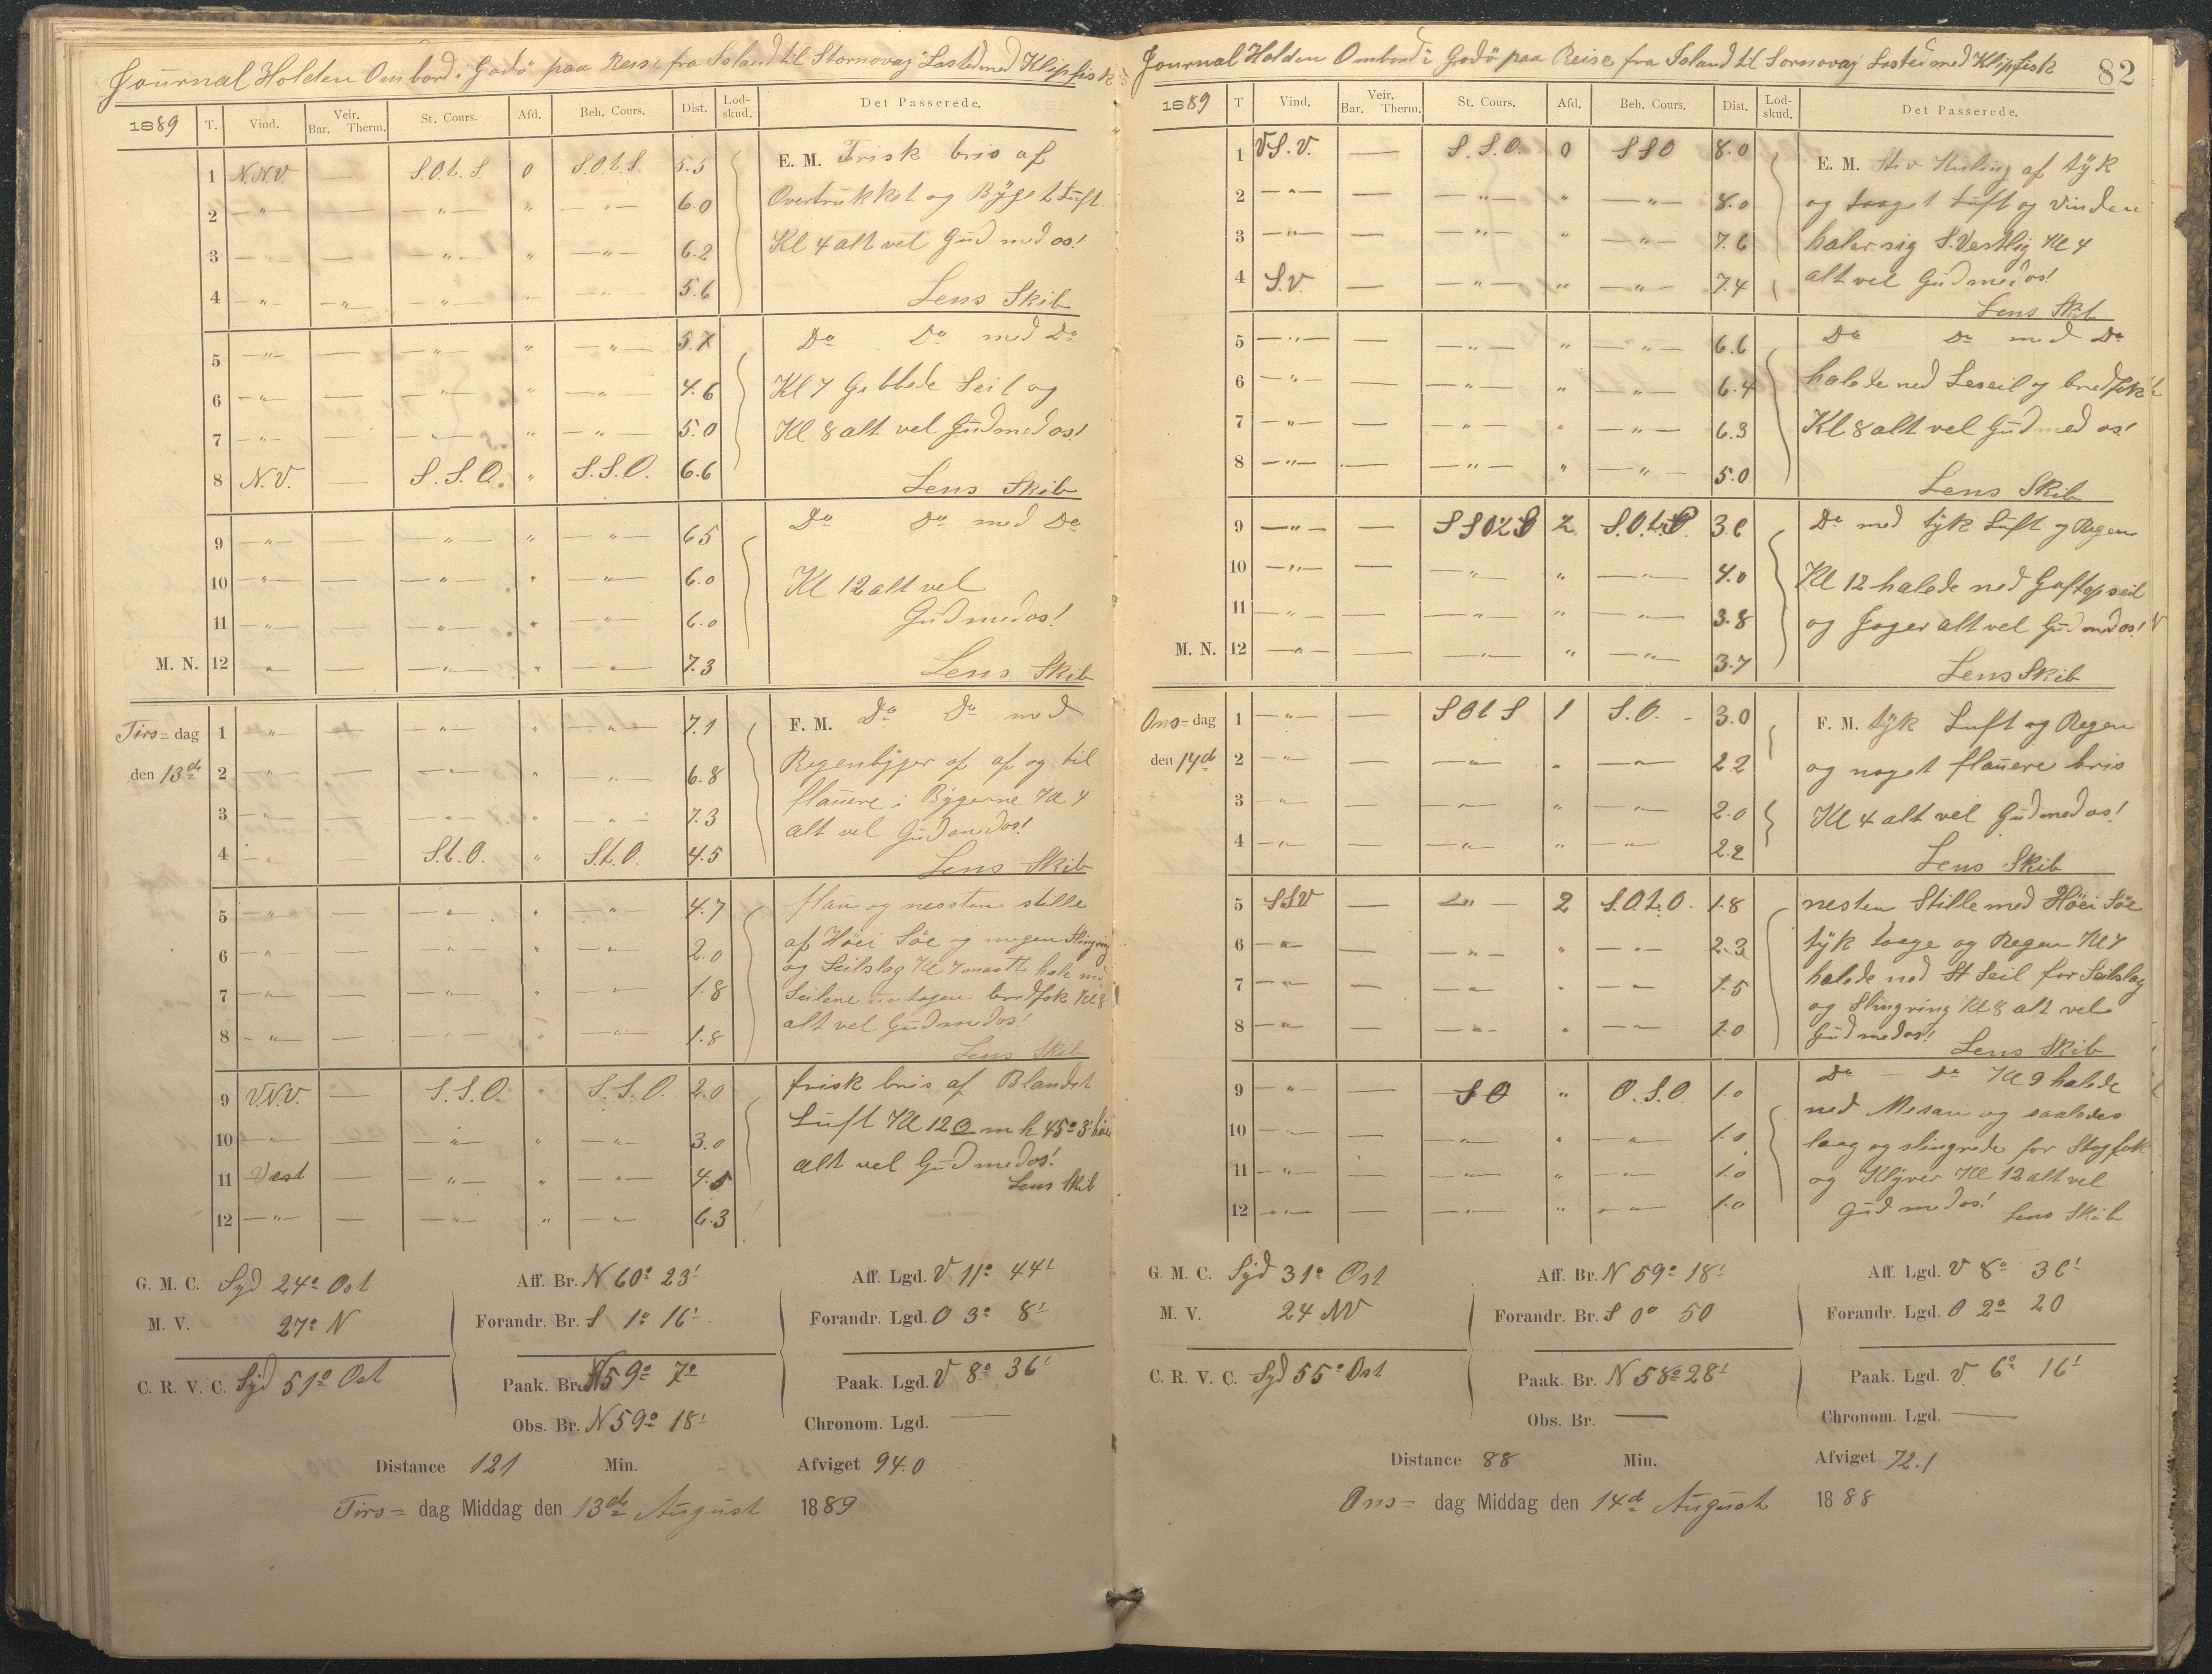 Journal Holden Ombord i Godö paa Reise fra Island til Stornovaj Lasted med Klipfisk
1889 T. Vind. Veir. Bar. Therm. St. Cours. Afd. Beh. Cours. Dist. Lod-skud. Det Passerede.
1 N.N.V. — S.O.t.S. 0 S.O.t.S. 5.5 E. M. Frisk bris af
2 —"— — —"— " —"— 6.0 Overtrukket og Bÿget Luft
3 —"— — —"— " —"— 6.2 Kl 4 alt vel Gud med os!
4 —"— —"— —"— " —"— 5.6 Lens Skib
5 —"— — —"— " —"— 5.7 Do Do med Do
6 —"— — —"— " —"— 4.6 Kl 7 Gibbede Seil og
7 —"— — —"— " —"— 5.0 Kl 8 alt vel Gud med os!
8 N.V. — S.S.O. " S.S.O. 6.6 Lens Skib
9 —"— — —"— " —"— 65 Do Do med Do
10 —"— — —"— " —"— 6.0 Kl 12 alt vel
11 —"— — —"— " —"— 6.0 Gud med os!
M. N. 12 " — —"— " —"— 7.3 Lens Skib
Tirs= dag 1 " — —"— " —"— 7.1 F. M. Do Do med
den 13de 2 —"— — —"— " —"— 6.8 Regenbÿger af af og til
3 —"— — —"— " —"— 7.3 flauere i Bÿgerne Kl 4
4 —"— S.t.O. " S.t.O. 4.5 alt vel Gud med os!
Lens Skib
5 —"— — —"— " —"— 4.7 flau og nessten stille
6 —"— — —"— " —"— 2.0 af Höei Söe og megen Slingring
7 —"— — —"— " —"— 1.8 og Seilslag Kl 7 maatte hale ned
8 —"— — —"— " —"— 1.8 Seilene untagen bredfok Kl 8
alt vel Gud med os!
Lens Skib
9 V.N.V. — S.S.O. " S.S.O. 2.0 frisk bris af Blandet
10 —"— — —"— " —"— 3.0 Luft Kl 12 O m h 45° 3'
11 Vest — —"— " —"— 4.5 alt vel Gud med os!
12 —"— — —"— " —"— 6.3 Lens Skib
G. M. C. Syd 24° Ost Aff. Br. N 60° 23' Aff. Lgd. V 11° 44'
M. V. 27° N Forandr. Br. S 1° 16' Forandr. Lgd. O 3° 8'
C. R. V. C. Syd 51° Ost Paak. Br. N 59° 7° Paak. Lgd. V 8° 36'
Obs. Br. N 59° 18' Chronom. Lgd. —
Distance 121 Min. Afviget 94.0
Tirs= dag Middag den 13de August 1889
Journal Holden Ombord i Godö paa Reise fra Island til Sornovaj Lasted med Klipfisk 82
1889 T Vind. Veir. Bar. Therm. St. Cours. Afd. Beh. Cours. Dist. Lod-skud. Det Passerede.
1 V.S.V. — S.S.O. 0 SSO 8.0 E. M. Stiv Kuling af tÿk
2 —"— — —"— " —"— 8.0 og taaget Luft og Vinden
3 —"— — —"— " —"— 7.6 haler sig S.Vestlig Kl 4
4 S.V. — —"— " —"— 7.4 alt vel Gud med os!
Lens Skib
5 —"— — —"— " —"— 6.6 Do Do med Do
6 —"— — —"— " —"— 6.4 halede ned Leseil og bredfok
7 —"— — —"— " —"— 6.3 Kl 8 alt vel Gud med os!
8 —"— — —"— " —"— 5.0 Lens Skib
9 —"— — 2 S.O.t.S. 3.6 Do med tÿk Luft og Regen
10 —"— — —"— " —"— 4.0 Kl 12 halede ned Gaftopseil
11 —"— — —"— " —"— 3.8 og Jager alt vel Gud med os!
M. N. 12 —"— — —"— " —"— 3.7 Lens Skib
Ons= dag 1 —"— — SOtS 1 S.O. 3.0 F. M. tÿk Luft og Regen
den 14de 2 —"— — —"— " —"— 2.2 og noget flauere bris
3 —"— — —"— " —"— 2.0 Kl 4 alt vel Gud med os!
4 —"— — —"— " —"— 2.2 Lens Skib
5 SSV — —"— 2 S.O.t.O. 1.8 nesten Stille med Höei Söe
6 —"— — —"— " —"— 2.3 tÿk taage og Regen Kl 7
7 —"— — —"— " —"— 1.5 halede ned St Seil for Seilslag
8 —"— — —"— " —"— 1.0 og Slingring Kl 8 alt vel
Gud med os! Lens Skib
9 —"— — SO " O.S.O. 1.0 Do — Do Kl 9 halede
10 —"— — —"— " —"— 1.0 ned Mesan og saaledes
11 —"— — —"— " —"— 1.0 laag og slingrede for Stagfok
12 —"— — —"— " —"— 1.0 og Klÿver Kl 12 alt vel
Gud med os! Lens Skib
G. M. C. Syd 31° Ost Aff. Br. N 59° 18' Aff. Lgd. V 8° 36'
M. V. 24 NV Forandr. Br. S 0° 50 Forandr. Lgd. O 2° 20
C. R. V. C. Syd 55° Ost Paak. Br. N 58° 28' Paak. Lgd. V. 6° 16'
Obs. Br. — Chronom. Lgd. —
Distance 88 Min. Afviget 72.1
Ons= dag Middag den 14de August 1888